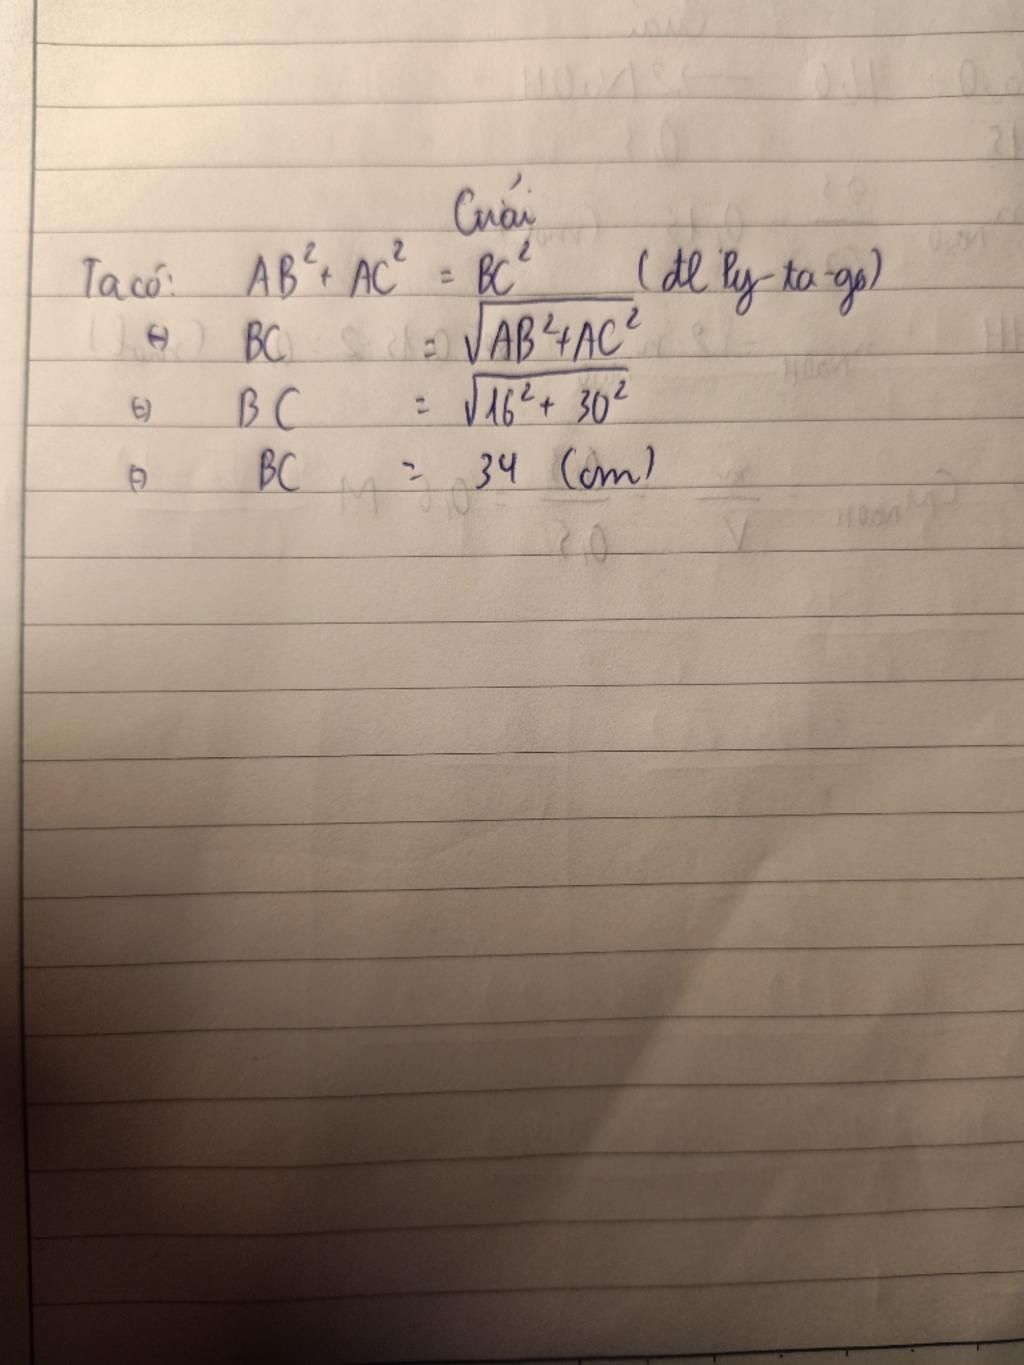 Giải
Ta có: AB² + AC² = BC² (đl Py-ta-go)
⇔ BC = √AB²+AC²
⇔ BC = √16² + 30²
⇔ BC = 34 (cm)